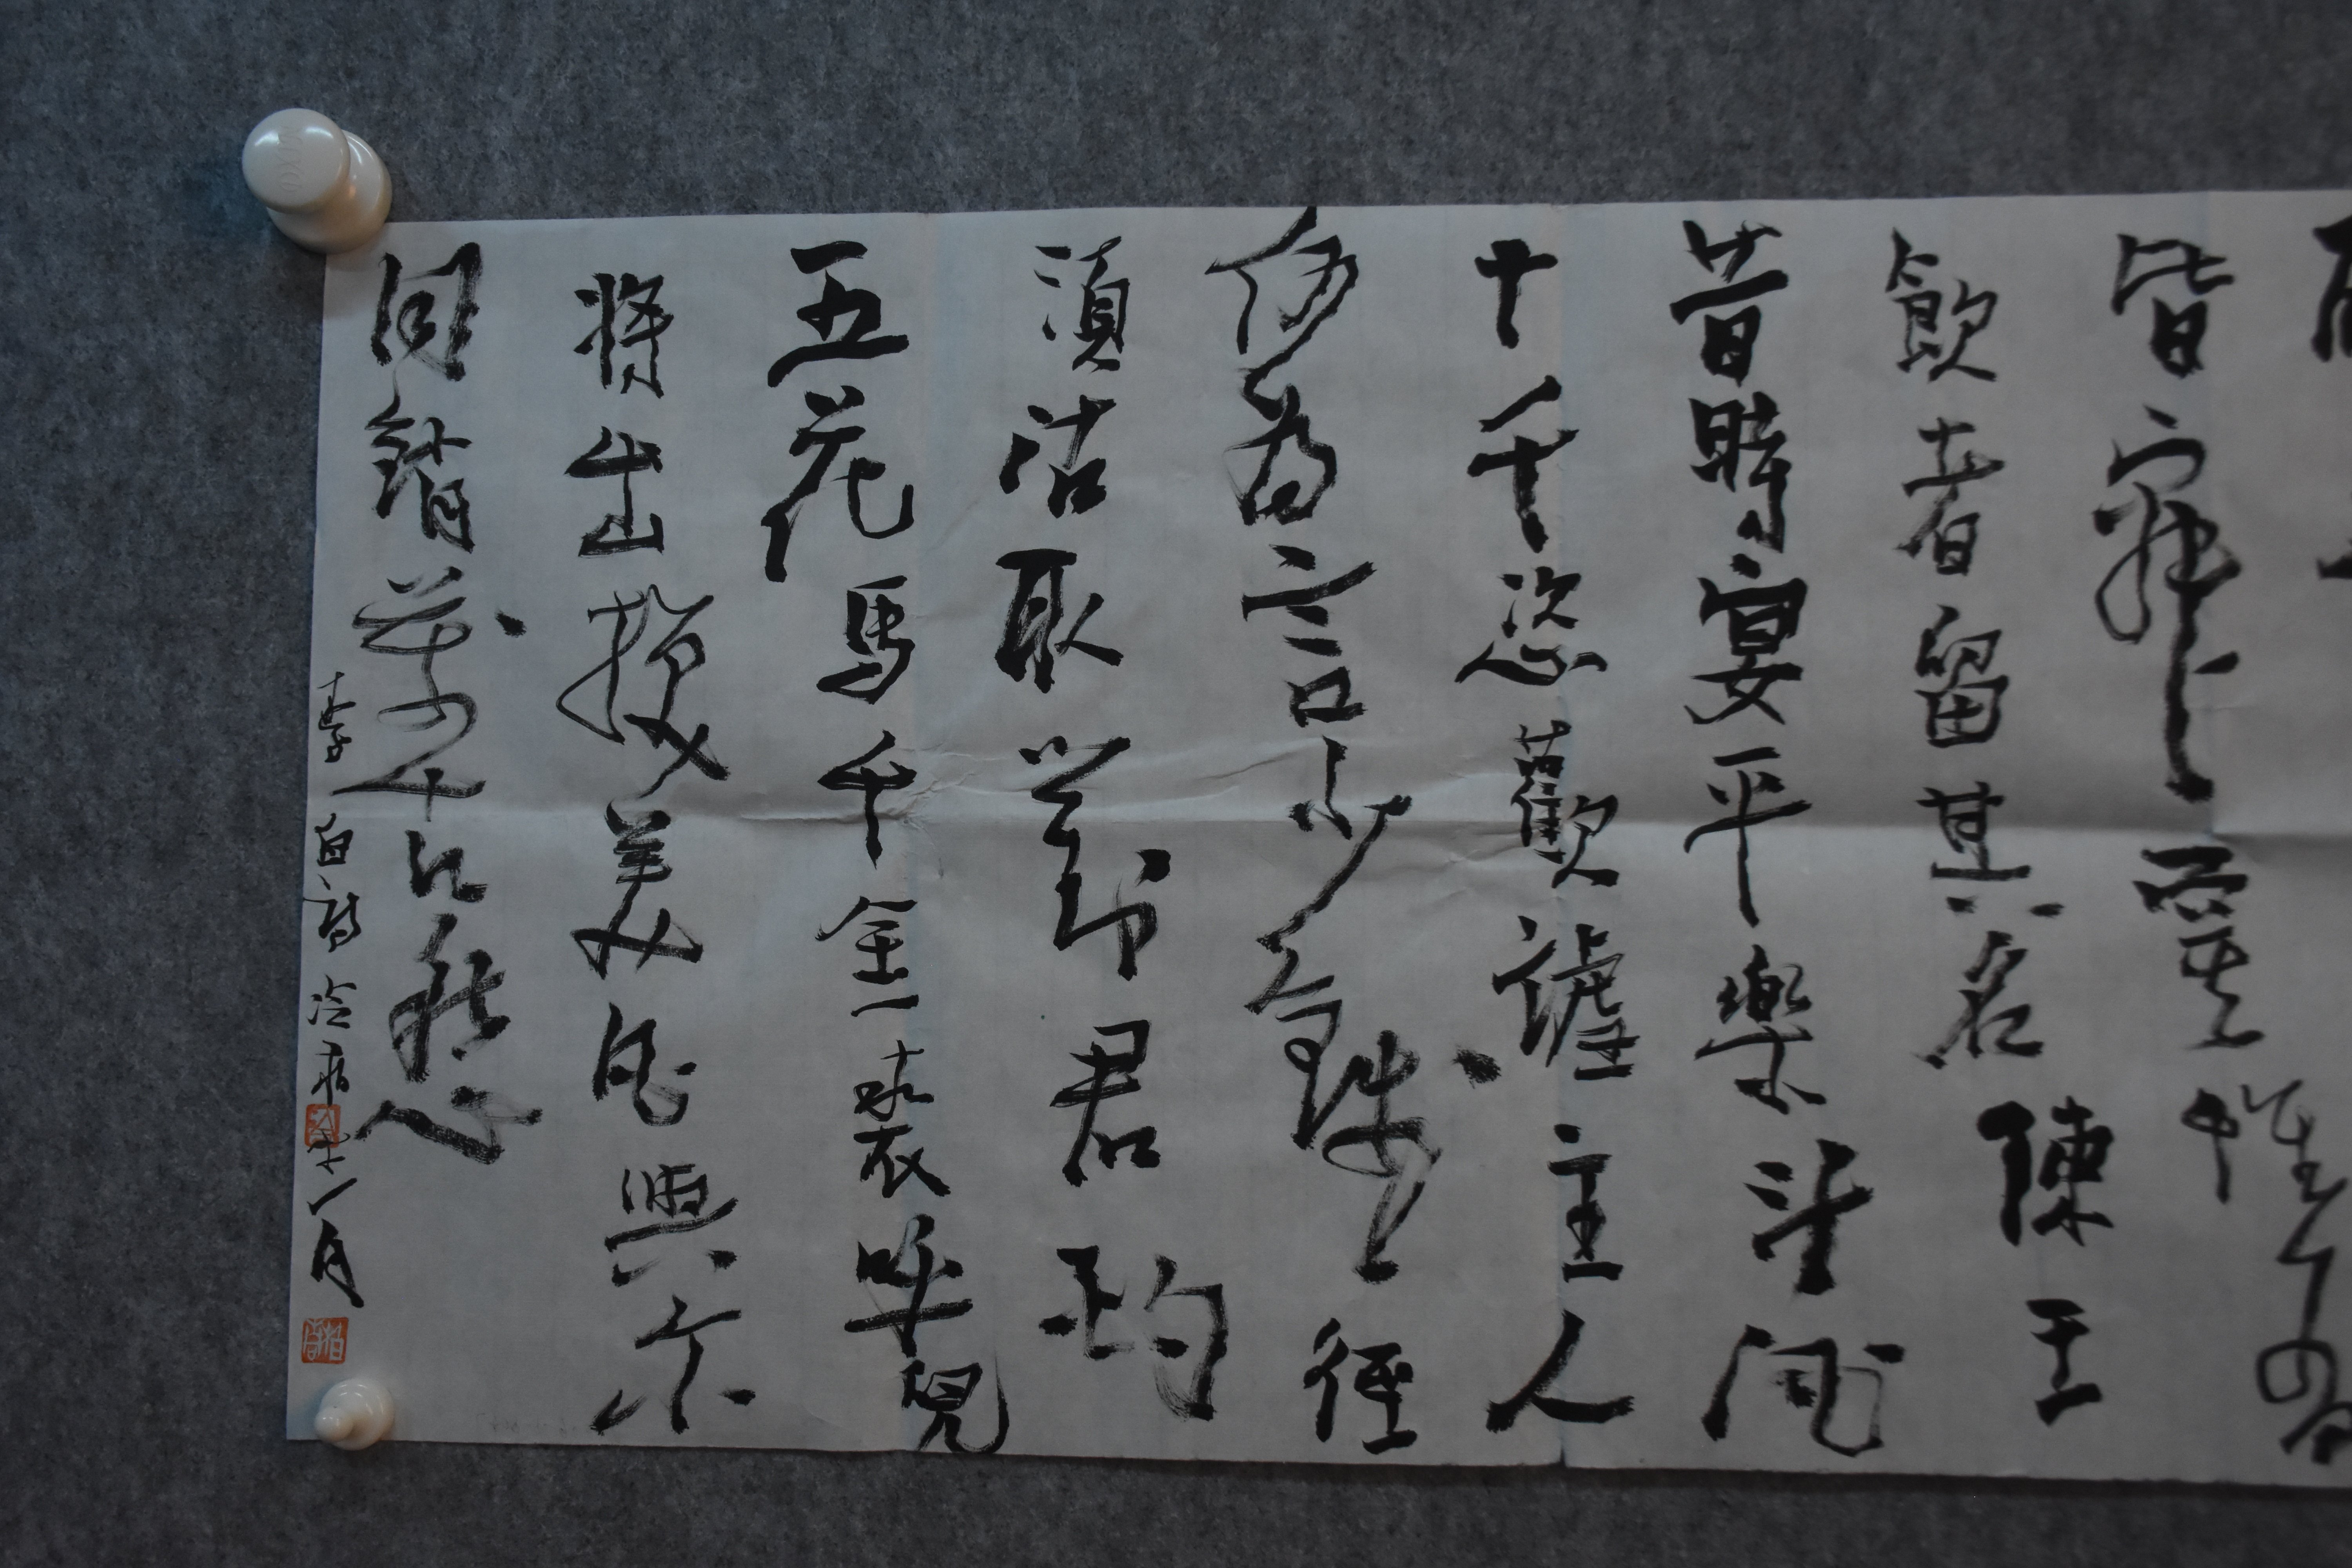 皆寂寞惟有
飲者留其名陳王
昔時宴平樂斗酒
十千恣歡謔主人
何為言少錢徑
須沽取對君酌
五花馬千金裘呼兒
將出換美酒與尔
同銷萬古愁
李白詩 一月